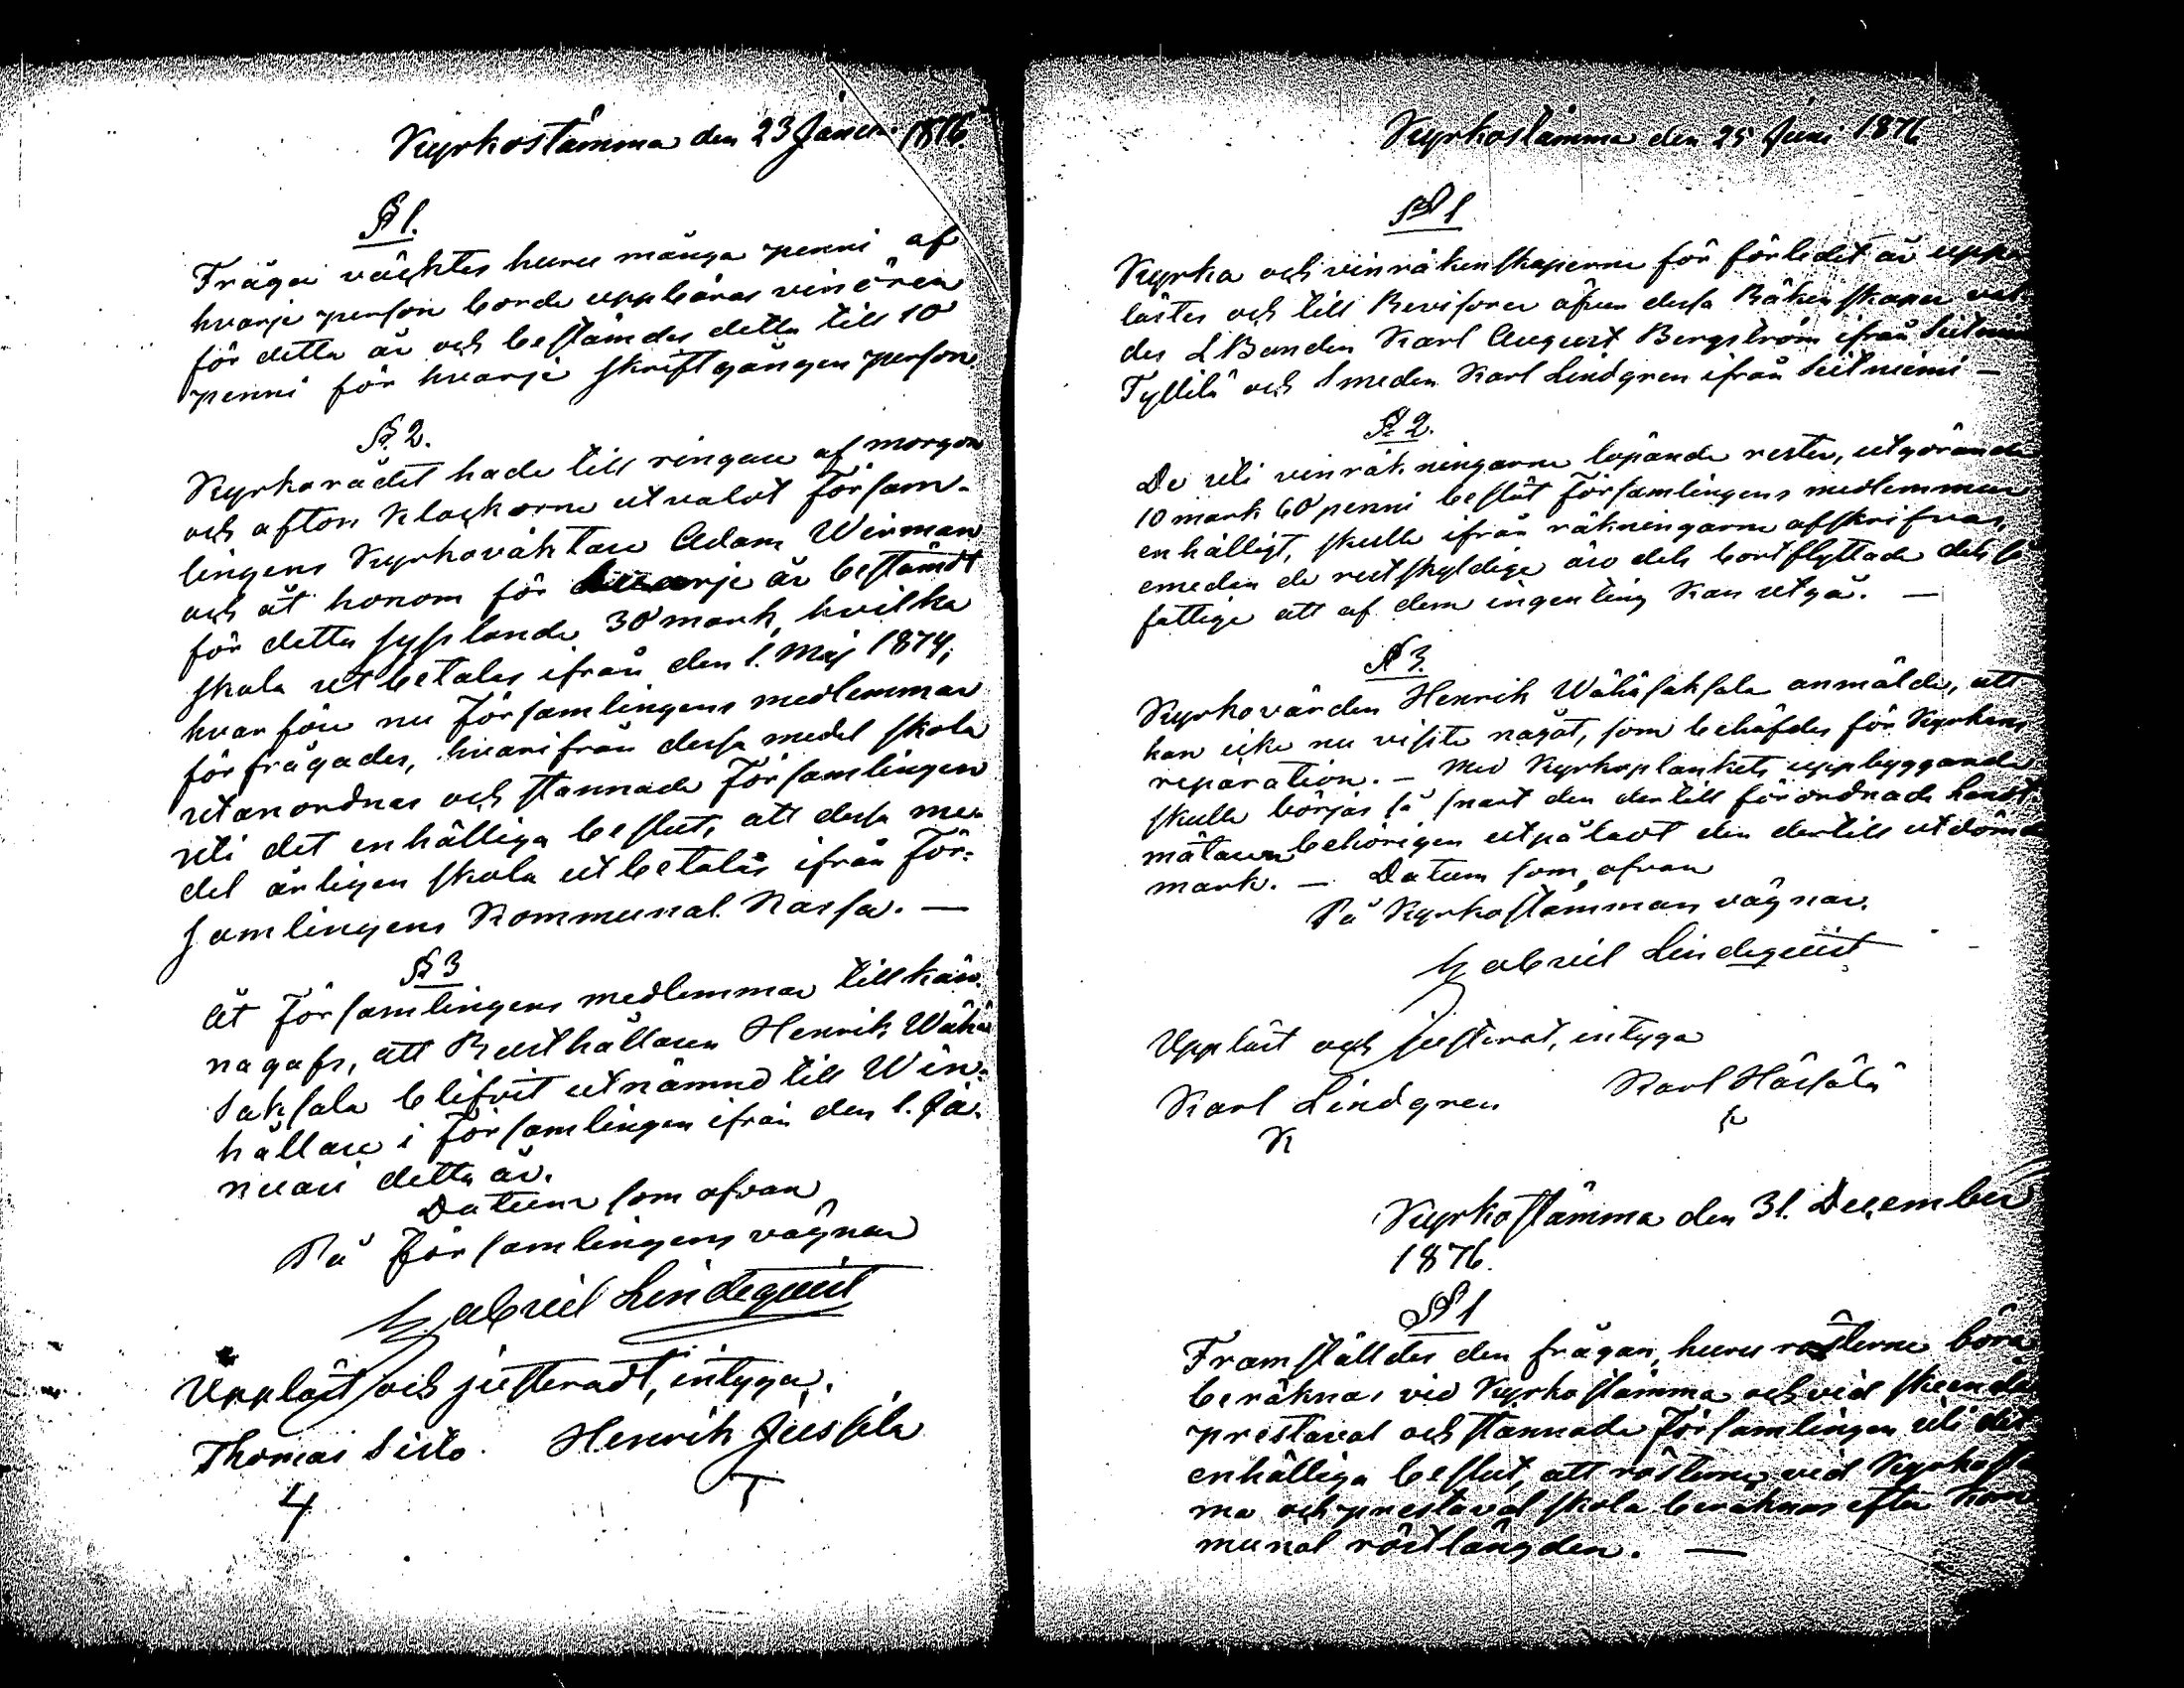 Kyrkostämma den 23 Januari 1876.
§ 1.
Fråga väcktes huru många penni af
hvarje person borde uppbäras vinören
för detta år och bestämdes detta till 10
penni för hvarje skriftgången person.
§ 2.
Kyrkorådet hade till ringare af morgon
och afton klockorne utvaldt Försam-
lingens Kyrkovaktare Adam Winman
och åt honom för hvarje år bestämdt
för detta sysslande 30 mark, hvilka
skola utbetalas ifrån den 1. Maj 1874;
hvarföre nu Församlingens medlemmar
förfrågades, hvarifrån dessa medel skola
utanordnas och stannade Församlingen
uti det enhälliga beslut, att dessa me-
del årligen skola utbetalas ifrån För-
samlingens Kommunal Kassa. —
§ 3
Åt Församlingens medlemmar tillkän-
nagafs, att Rusthållaren Henrik Wähä
Saksala blifvit utnämnd till Win-
hållare i Församlingen ifrån den 1. Ja-
nuari detta år.
Datum som ofvan
På Församlingens vägnar
Gabriel Lindequist
Uppläst och justeradt, intyga.
Thomas Sisto. Henrik Jussila
Kyrkostämma den 25 Juni 1876
§ 1
Kyrka och vinräkenskaperne för förledet år uppe
lästes och till Revisorer öfver dessa Räkenskaper val-
des LBonden Karl August Bergström ifrån
Tyllilä och Smeden Karl Lindgren ifrån Seitniemi —
§ 2.
De uti vinräkningarne löpande rester, utgörande
10 mark 60 penni beslöt Församlingens medlemmar
enhälligt, skulle ifrån räkningarne afskrifvas,
emedan de restskyldige äro dels bortflyttade dels så
fattige att af dem ingenting kan utgå. —
§ 3.
Kyrkovärden Henrik Wähäsaksala anmälde, att
han icke nu visste något, som behöfdes för Kyrkans
reparation. — Med Kyrkoplankets uppbyggande
skulle börjas så snart den dertill förordnade Landt-
mätaren behörigen utpålat den dertill utdömde
mark. — Datum som ofvan
På Kyrkostämmans vägnar.
Gabriel Lindequist
Uppläst och justerat, intyga
Karl Lindgren Karl Hässälä
K
Kyrkostämma den 31. December
1876.
§ 1
Framställdes den frågan, huru rösterne böra
beräknas vid Kyrkostämma och vid skeende
prestaval och stannade Församlingen uti det
enhälliga beslut, att rösterne vid Kyrkostä
ma och prestaval skola beräknas efter Kom
munal röstlängden. —